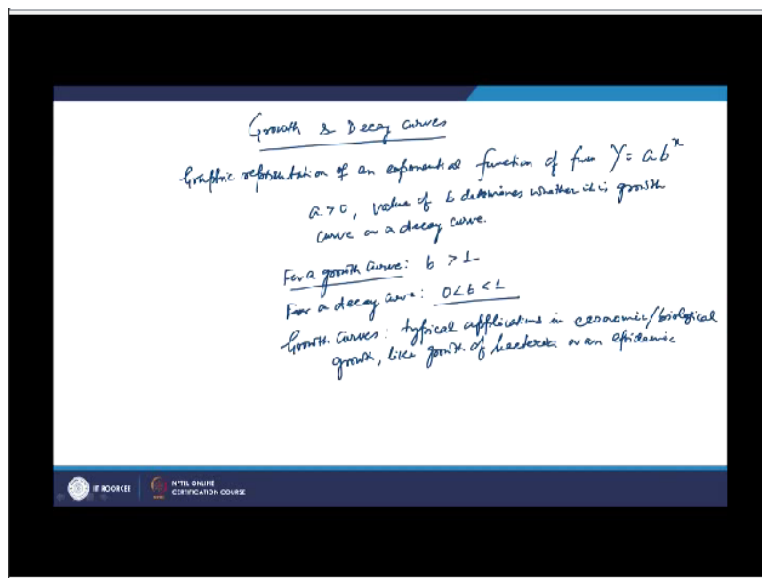 Growth & Decay Curves
Graphic representation of an exponential function of form Y = a b^x
a > 0, value of b determines whether it is growth
curve or a decay curve.
For a growth curve: b > 1
For a decay curve: 0 < b < 1
Growth Curves: typical applications in economic/biological
growth, like growth of bacteria or an epidemic
IIT ROORKEE
NPTEL ONLINE
CERTIFICATION COURSE